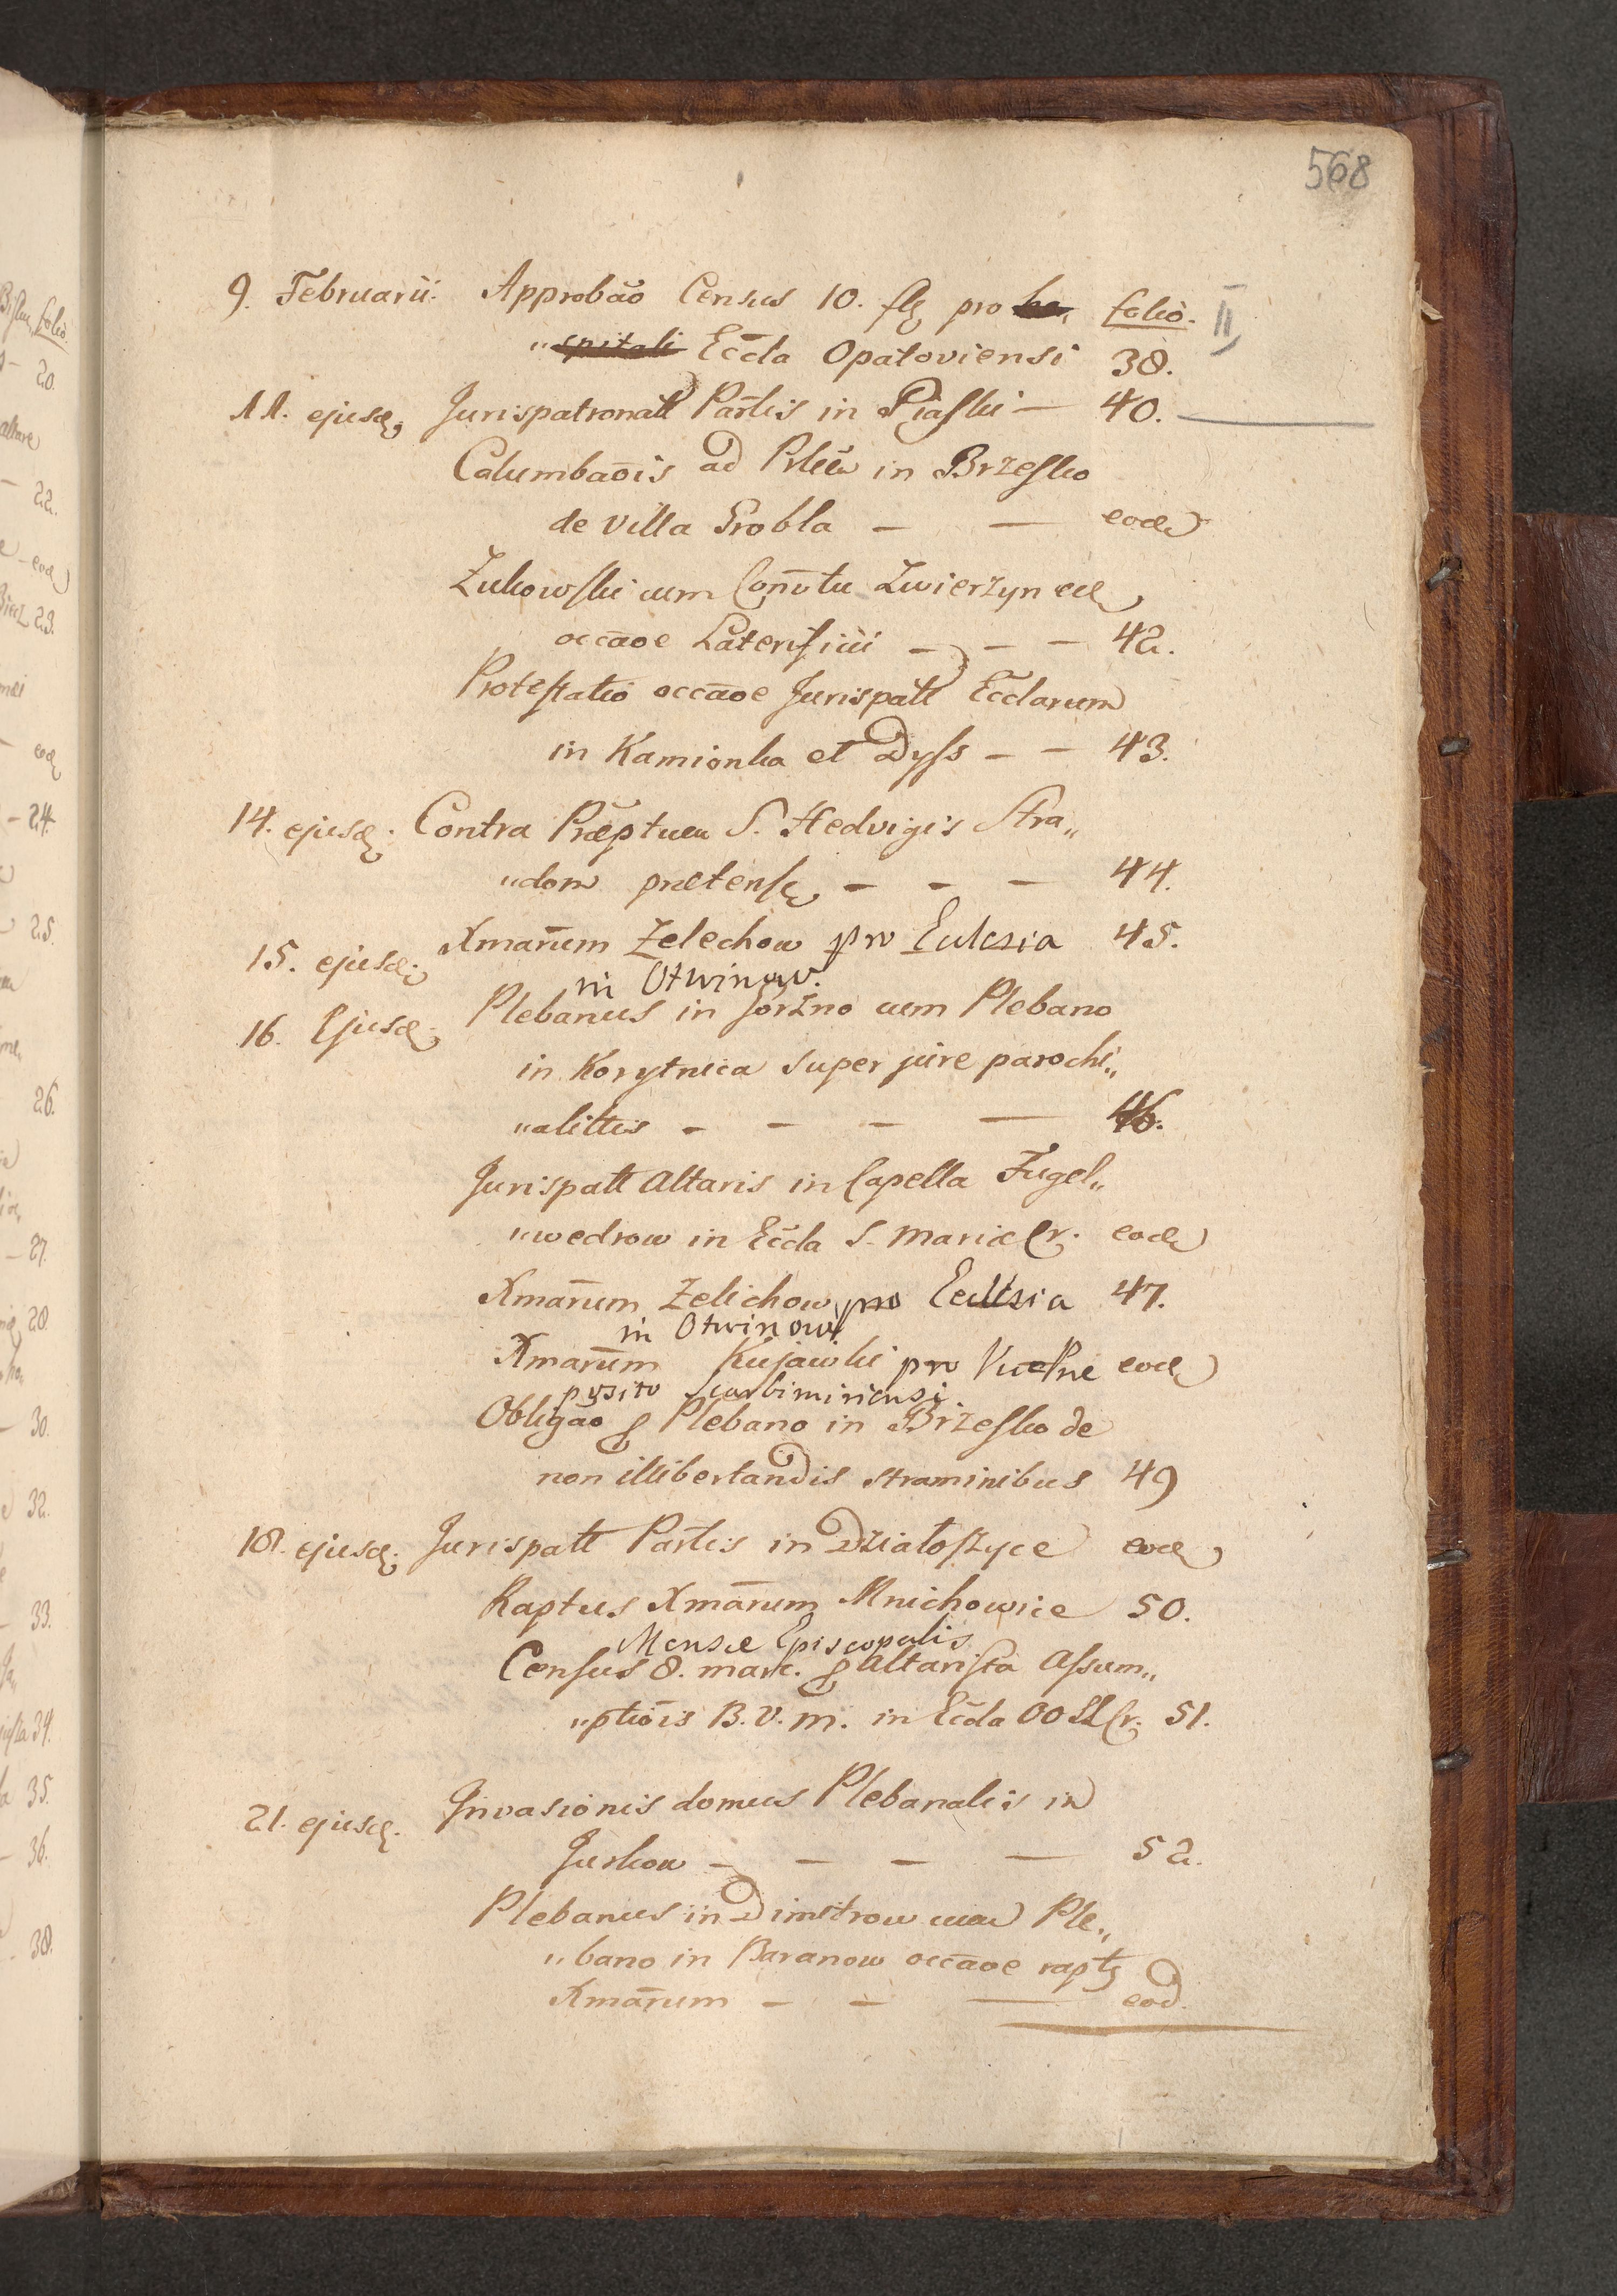 568
9. Februarii. Approbāo Census 10. flз pro ho, folio. II
„spitali Eccla Opatoviensi 38.
11. ejusd. Jurispatronatt Partis in Piaski — 40.
Calumbaōis ad Plēu in Brzesko
de villa Grobla — — eod
Zukowski cum Convtu Zwierzynec
occāoe Laterificii — — — 42.
Protestatio occāoe Jurispatt Ecclarum
in Kamionka et Dyss — — 43.
14. ejusd. Contra Præptum S. Hedvigis Stra„
„dom prætens — — — 44.
15. ejusd. Xmarum Zelechow pro Eulesia 45.
in Otwinow.
16. Ejusd. Plebanus in Gorzno cum Plebano
in Korytnica super jure parochi„
„alittis — — — — 46.
Jurispatt Altaris in Capella Fugel„
„wedrow in Eccla S. Mariæ Cr. eod
Xmarum Zelichow pro Ecclesia 47.
in Otwinow
Xmarum Kujawki pro VicePræ eod
posito Scarbimiriensi
Obligāo p Plebano in Brzesko de
non illibertandis straminibus 49
18. ejusd. Jurispatt Partis in Działoszyce eod
Raptus Xmarum Mnichowice 50.
Mensæ Episcopalis
Census 8. marc. p Altarista Assum„
„ptiōis B. V. M. in Eccla OO SS Cr. 51.
21. ejusd. Invasionis domus Plebanalis in
Jurkow — — — — 52.
Plebanus in Dimitrow cum Ple„
„bano in Baranow occāoe rapts
Xmarum — — — eod.